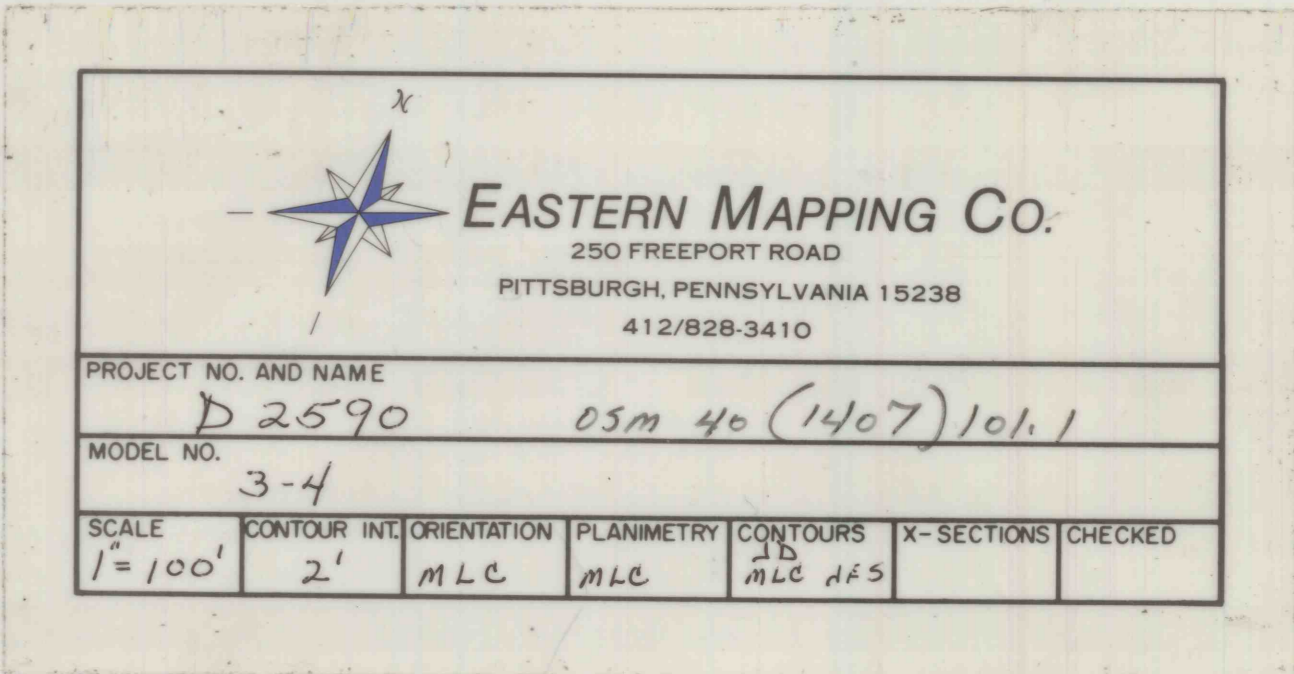 N
EASTERN MAPPING CO.
250 FREEPORT ROAD
PITTSBURGH, PENNSYLVANIA 15238
412/828-3410
PROJECT NO. AND NAME
D 2590 OSM 40 (1407) 101.1
MODEL NO.
3-4
SCALE CONTOUR INT. ORIENTATION PLANIMETRY CONTOURS X-SECTIONS CHECKED
JD
1"=100' 2' MLC MLC MLC JFS